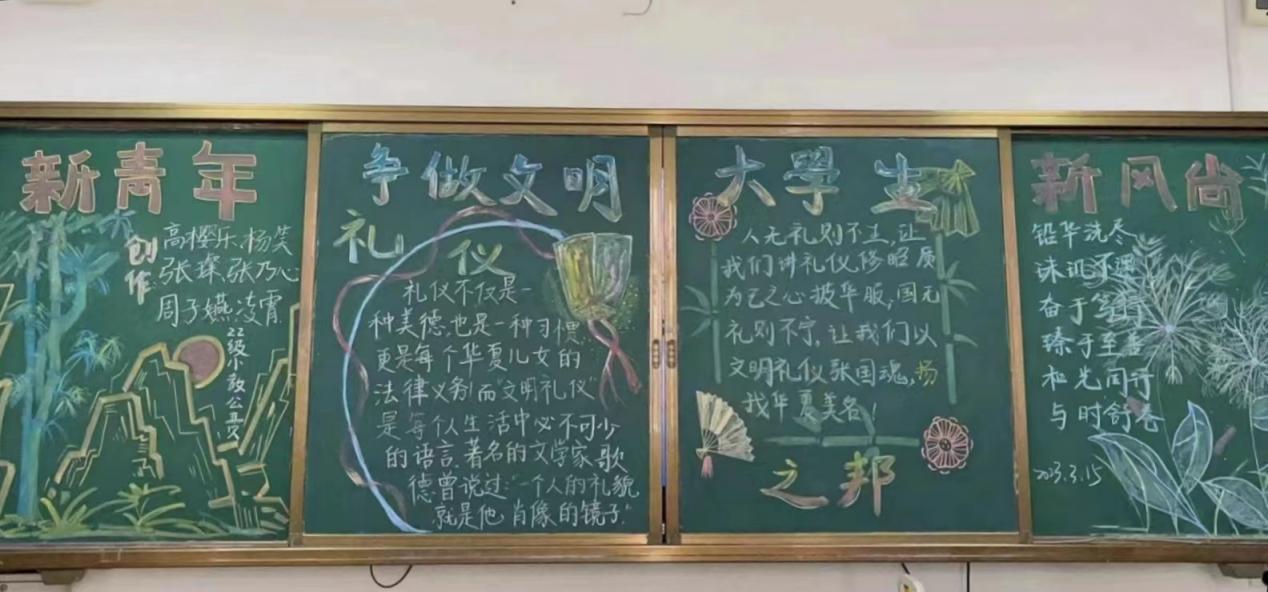 新青年
创作
高樱乐.杨笑
张璨.张乃心
周子嬿.凌霄
22级小教公费
争做文明
礼仪
礼仪不仅是一
种美德,也是一种习惯
更是每个华夏儿女的
法律义务而"文明礼仪"
是每个人生活中必不可少
的语言.著名的文学家歌
德曾说过:"一个人的礼貌
就是他肖像的镜子."
大学生
人无礼则不立,让
我们讲礼仪,修昭质
为艺之心披华服,国无
礼则不宁,让我们以
文明礼仪张国魂,扬
我华夏美名!
之邦
新风尚
铅华洗尽
奋于
臻于至善
和光同行
与时舒卷
3.15